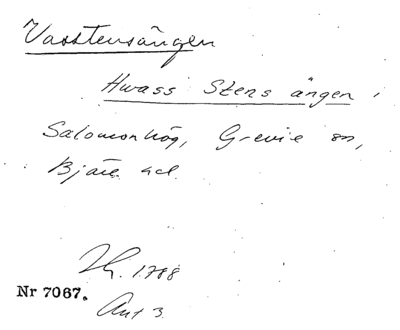 Vasstensängen
Hwass Stens ängen i
Salomonhög, Grevie sn,
Bjäre hd.
1788
Nr 7067.
Akt 3.